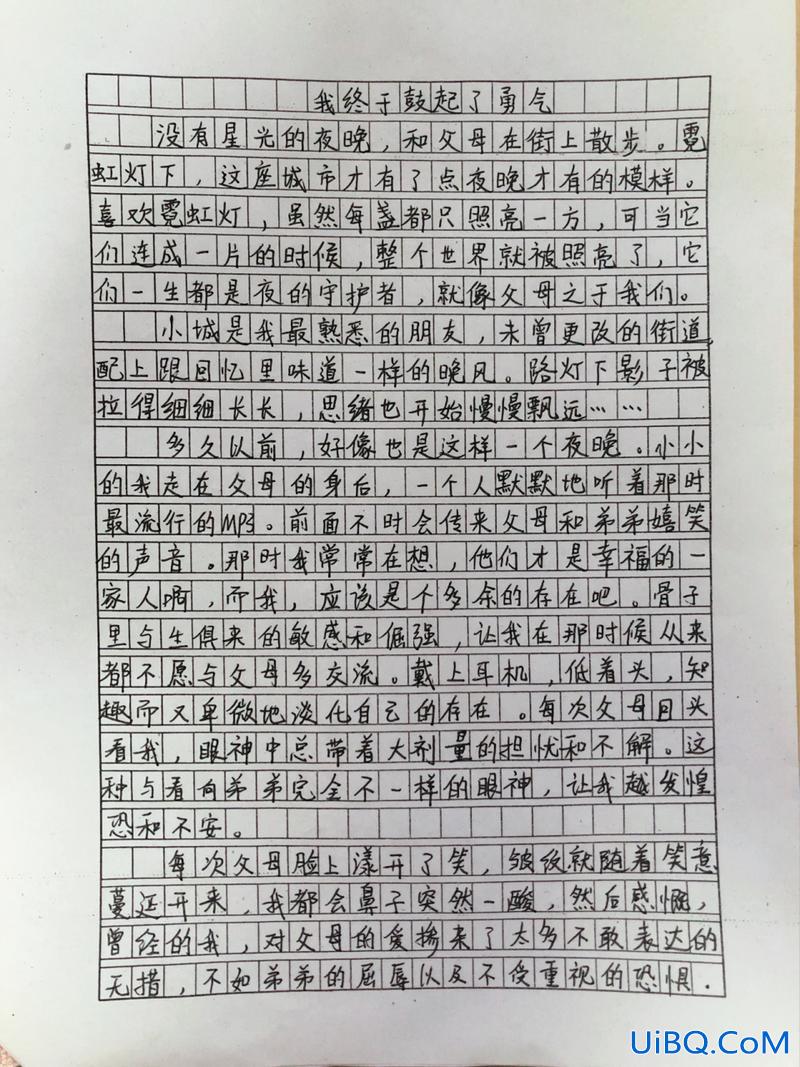 我终于鼓起了勇气
没有星光的夜晚，和父母在街上散步。霓
虹灯下，这座城市才有了点夜晚才有的模样。
喜欢霓虹灯，虽然每盏都只照亮一方，可当它
们连成一片的时候，整个世界就被照亮了，它
们一生都是夜的守护者，就像父母之于我们。
小城是我最熟悉的朋友，未曾更改的街道，
配上跟回忆里味道一样的晚风。路灯下影子被
拉得细细长长，思绪也开始慢慢飘远……
多久以前，好像也是这样一个夜晚。小小
的我走在父母的身后，一个人默默地听着那时
最流行的MP3。前面不时会传来父母和弟弟嬉笑
的声音。那时我常常在想，他们才是幸福的一
家人啊，而我，应该是个多余的存在吧。骨子
里与生俱来的敏感和倔强，让我在那时候从来
都不愿与父母多交流。戴上耳机，低着头，知
趣而又卑微地淡化自己的存在。每次父母回头
看我，眼神中总带着大剂量的担忧和不解。这
种与看向弟弟完全不一样的眼神，让我越发惶
恐和不安。
每次父母脸上漾开了笑，皱纹就随着笑意
蔓延开来，我都会鼻子突然一酸，然后感慨，
曾经的我，对父母的爱掺杂了太多不敢表达的
无措，不如弟弟的屈辱以及不受重视的恐惧．
UiBQ.CoM